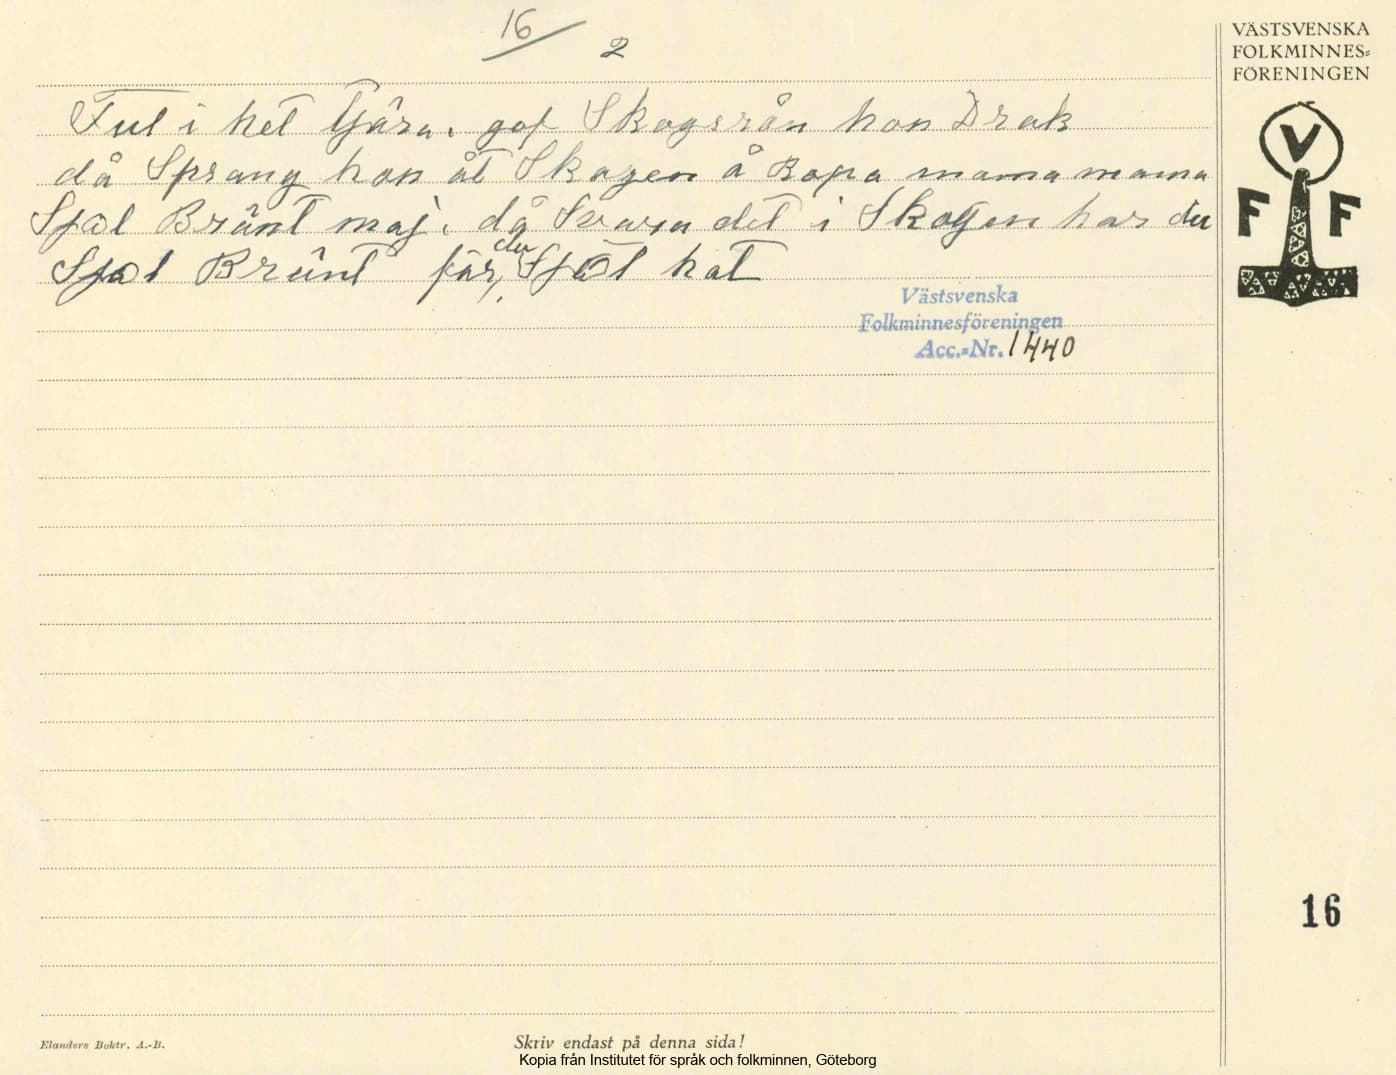 16
2
VÄSTSVENSKA
FOLKMINNES=
FÖRENINGEN
Ful i het Tjära. gaf Skogsrån hon Drak
då Sprang hon åt Skogen å Ropa mama mama
Sjæl Bränt maj. då Svara det i Skogen har du
Sjæl Bränt får, du Sjæl hat
V
F F
Västsvenska
Folkminnesföreningen
Acc.=Nr. 1440
16
Elanders Boktr. A.-B.
Skriv endast på denna sida!
Kopia från Institutet för språk och folkminnen, Göteborg